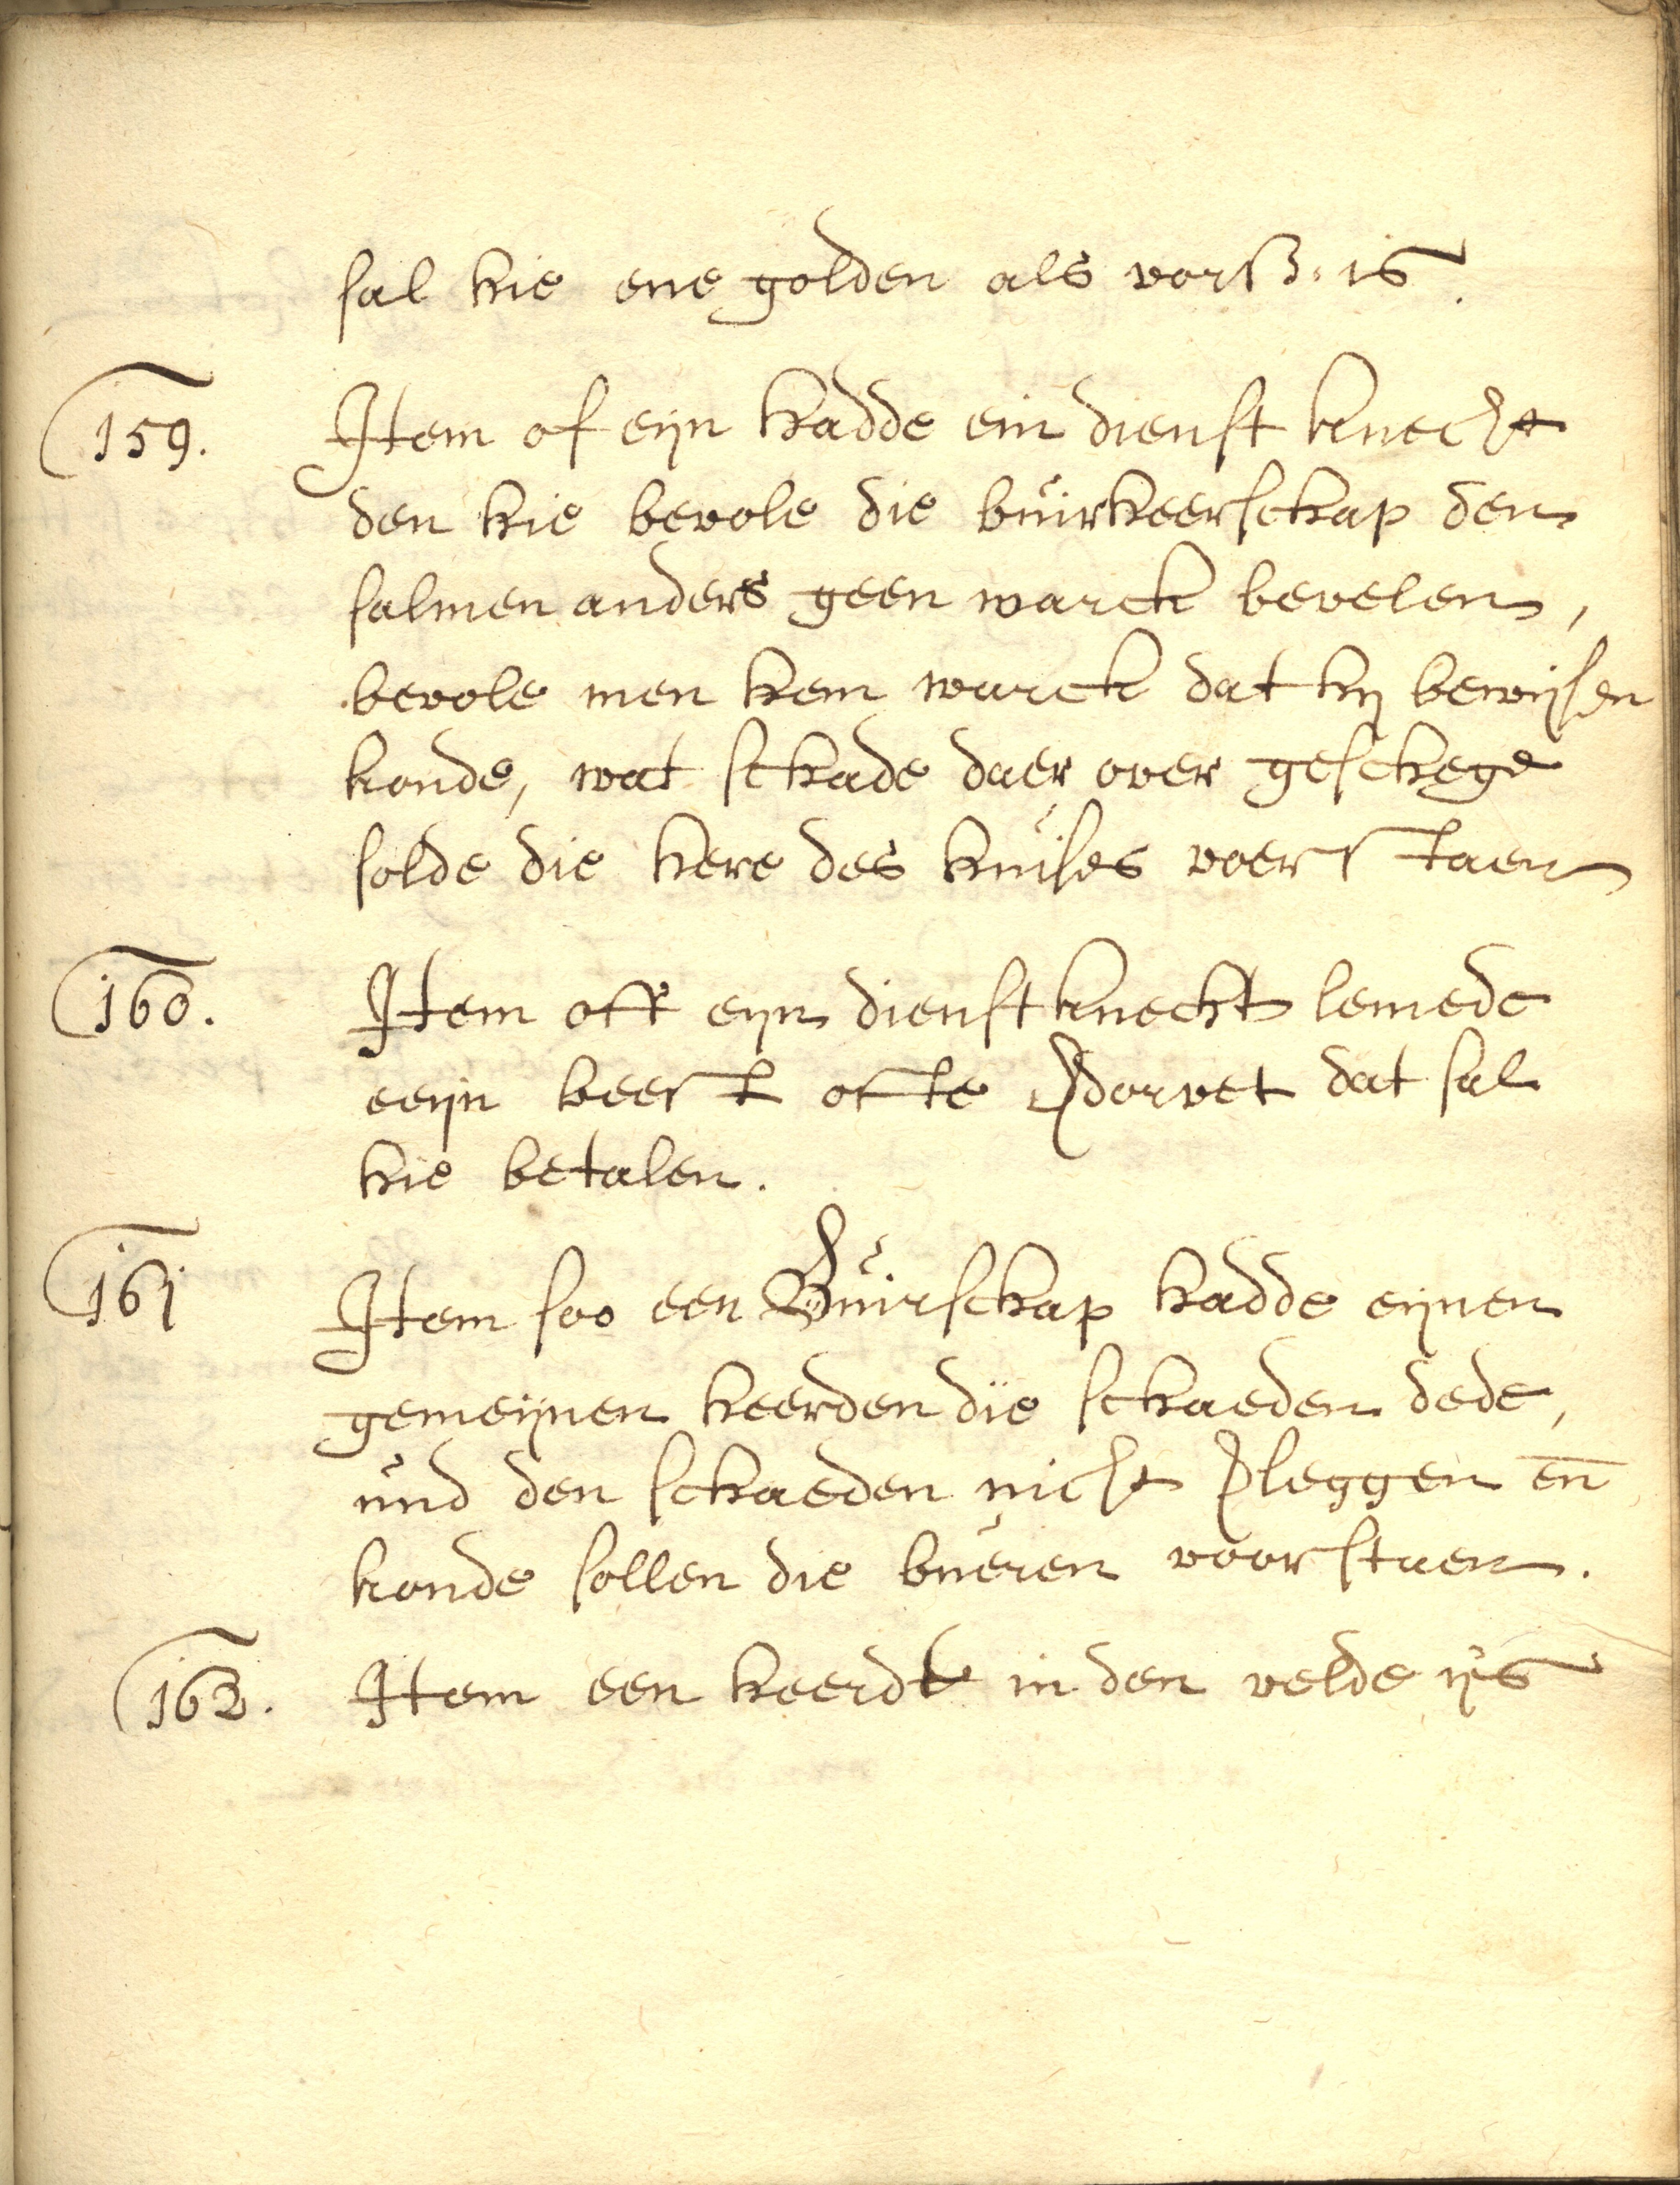 sal hie ene gelden als vorß. is.
159. Item of eyn hadde ein dienst knecht
den hie bevole die buirheerschap den
salmen anders geen warck bevelen,
bevole men hem warck dat hy bewysen
konde, wat schade daer over geschege
solde die here des huises voerstaen
160. Item off eyn dienstknecht lemede
eeyn beest ofte  dat sal
hie betalen.
161 Item soo een Buirschap hadde eynen
gemeynen heerden die schaeden dede,
und den schaeden nicht  en̄
konde sollen die bueren voorstaen.
162. Item een heerde in den velde ys